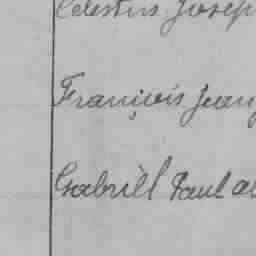 Celestus Josep
François Jean
Gabriël Paul al